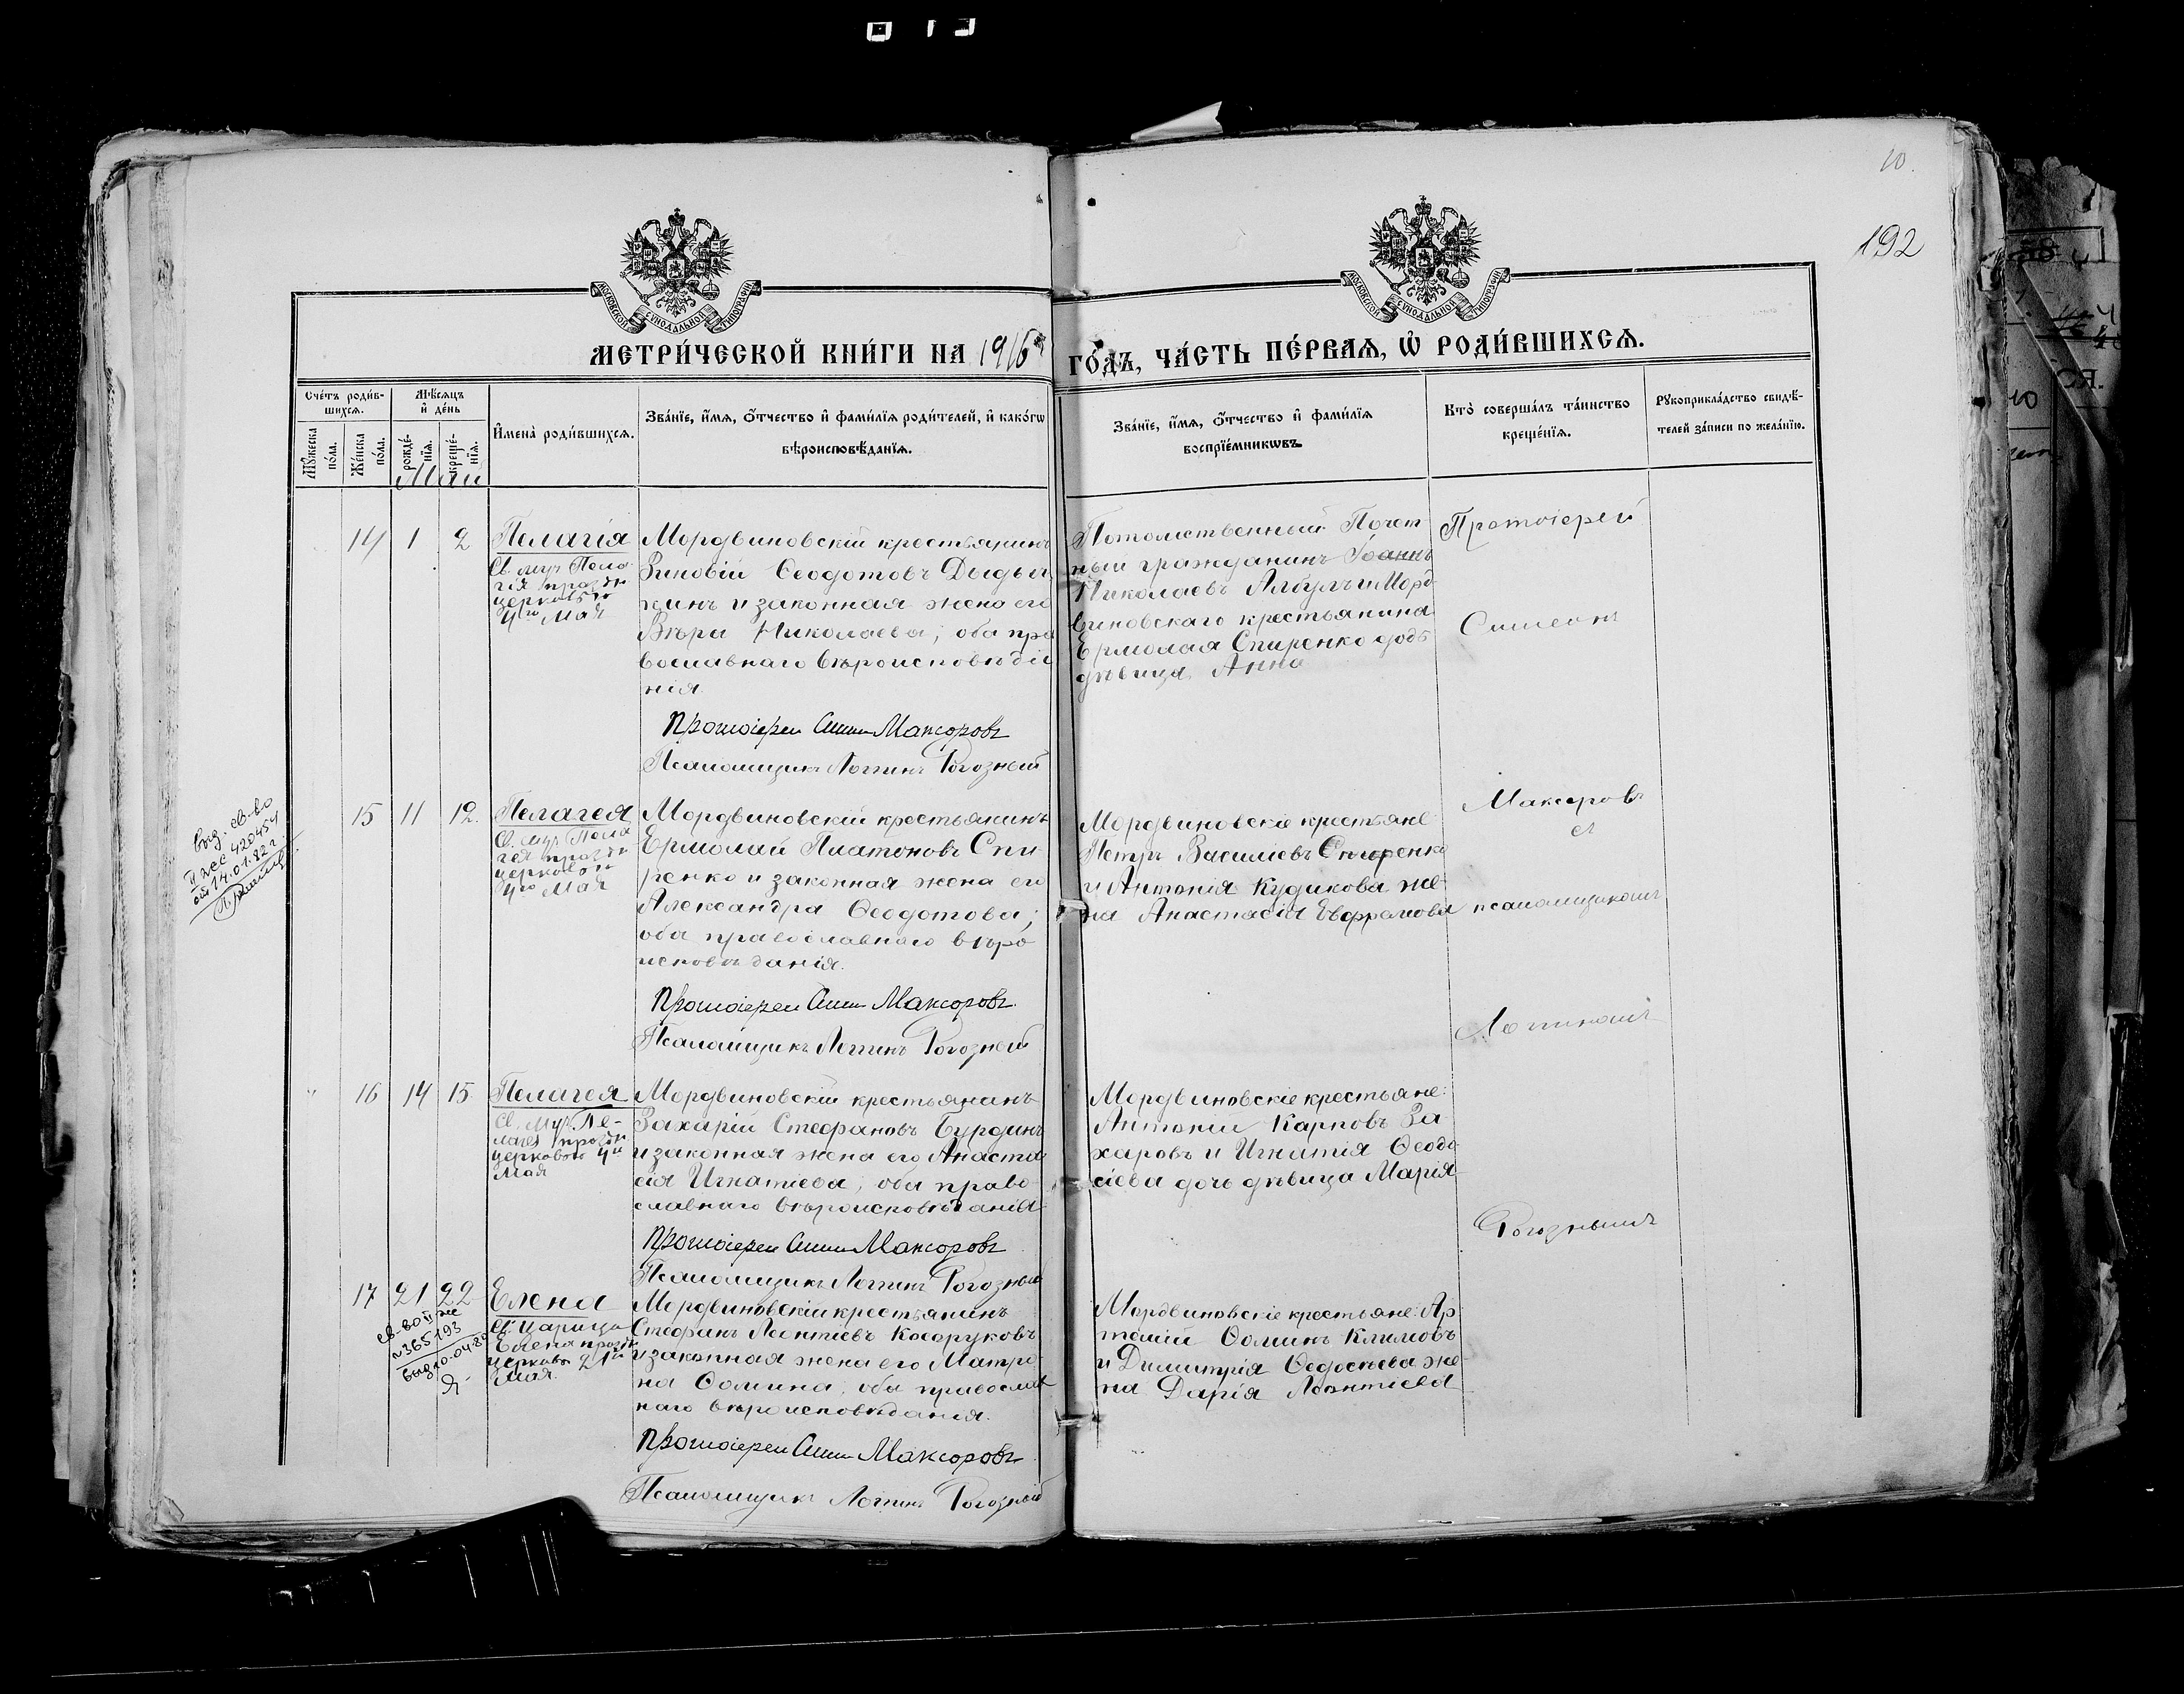 10.
192
МОСКОВСКОЙ СѴНОДАЛЬНОЙ ТИПОГРАФІИ
МОСКОВСКОЙ СѴНОДАЛЬНОЙ ТИПОГРАФІИ
МЕТРИ́ЧЕСКОЙ КНИ́ГИ НА 1916й ГО́ДЪ, ЧА́СТЬ ПЕ́РВАѦ, Ѡ҆ РОДИ́ВШИХСѦ.
Сче́тъ роди́в-
шихсѧ.
Мѹ́жеска
по́ла.
Же́нска
по́ла.
Мѣ́сѧцъ
и҆ де́нь
рожде́-
нїѧ.
креще́-
нїѧ.
Май
И҆мена̀ роди́вшихсѧ.
Зва́нїе, и҆́мѧ, ѻ҆́тчество и҆ фами́лїѧ роди́телей, и҆ како́гѡ
вѣроисповѣ́данїѧ.
Зва́нїе, и҆́мѧ, ѻ҆́тчество и҆ фами́лїѧ
воспрїе́мникѡвъ.
Кто̀ соверша́лъ та́инство
креще́нїѧ.
Рѹкоприкла́дство свидѣ́-
телей за́писи по жела́нїю.
14 1 2
Пелагія
Св. муч. Пела
гія праздн
церковью
4го Мая
Мордвиновскій крестьянинъ
Зиновій Ѳеодотовъ Дыды
кинъ и законная жена его
Вѣра Николаева; оба пра
вославнаго вѣроисповѣда
нія.
Протоіерей Симеонъ Максоровъ
Псаломщикъ Логгинъ Рогозный
Потомственный Почет
ный гражданинъ Іоаннъ
Николаевъ Албулъ и Морд
виновскаго крестьянина
Ермолая Спиренко дочь
дѣвица Анна
Протоіерей
Симеонъ
Максоровъ
съ
псаломщикомъ
Логгиномъ
Рогознымъ
выд. св-во
II ДЕС 420454
от 14.01.82 г.
15 11 12.
Пелагея
Св. муч. Пела
гея праздн
церковью
4го Мая
Мордвиновскій крестьянинъ
Ермолай Платоновъ Спи
ренко и законная жена его
Александра Ѳеодотова;
оба православнаго вѣро
исповѣданія.
Протоіерей Симеонъ Максоровъ
Псаломщикъ Логгинъ Рогозный
Мордвиновскіе крестьяне
Петръ Василіевъ Спиренко
и Антонія Кудикова же-
на Анастасія Евфрамова
16 14 15
Пелагея
Св. Муч. Пе-
лагея праздн
церковью 4го
Мая
Мордвиновскій крестьянинъ
Захарій Стефановъ Бурдинъ
и законная жена его Анаста
сія Игнатіева; оба право
славнаго вѣроисповѣданія
Протоіерей Симеонъ Максоровъ
Псаломщикъ Логгинъ Рогозный
Мордвиновскіе крестьяне:
Антоній Карповъ За
харовъ и Игнатія Ѳеодо
сіева дочь дѣвица Марія
17 21 22
св-во II же
№365193
выд 10.04.80
Елена
Св. Царица
Елена праздн
церковью 21го
Мая.
Мордвиновскій крестьянинъ
Стефанъ Леонтіевъ Косоруковъ
и законная жена его Матро
на Ѳомина; оба православ
наго вѣроисповѣданія.
Протоіерей Симеонъ Максоровъ
Псаломщикъ Логгинъ Рогозный
Мордвиновскіе крестьяне: Ар
темій Ѳоминъ Климовъ
и Димитрія Ѳедосѣева же-
на Дарія Леонтіева